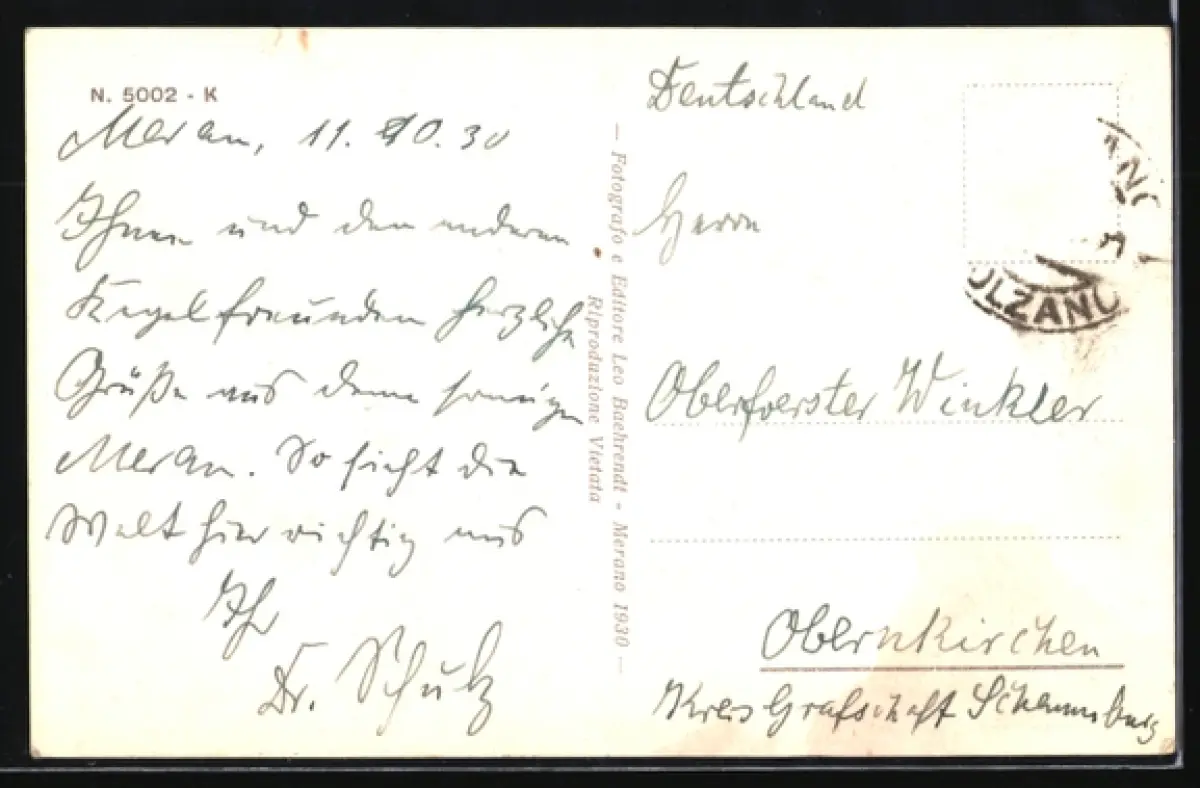 N. 5002 - K
Meran, 11. 10. 30
Ihnen und den anderen
Kegelfreunden herzliche
Grüße aus dem sonnigen
Meran. So sieht die
Welt hier richtig aus
Ihr
Dr. Schulz
— Fotografo e Editore Leo Baehrendt - Merano 1930 —
Riproduzione Vietata
Deutschland
Herrn
Oberfoerster Winkler
Obernkirchen
Kreis Grafschaft Schaumburg
OLZANO